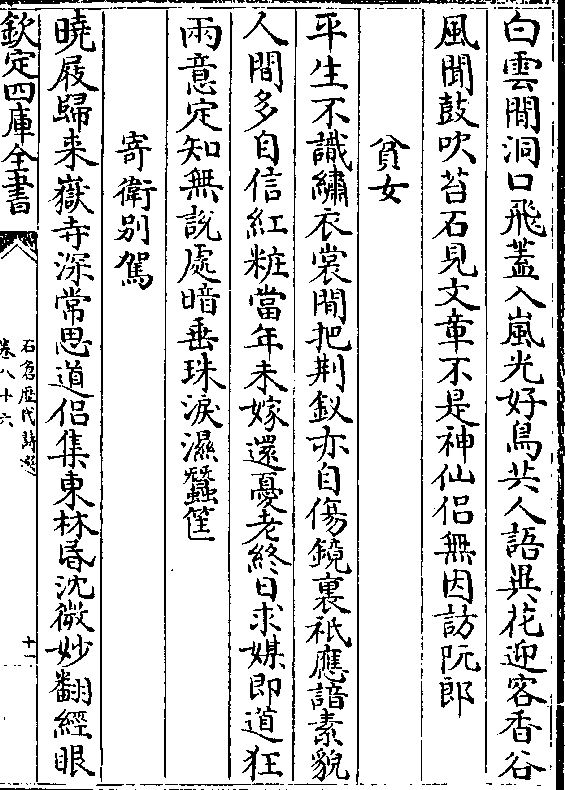 白雲間洞口飛蓋入嵐光好鳥共人語異花迎客香谷
風聞鼓吹苔石見文章不是神仙侶無因訪阮郎
貧女
平生不識繡衣裳閒把荆釵亦自傷鏡裏衹應諳素貌
人間多自信紅粧當年未嫁還憂老終日求媒即道狂
兩意定知無說處暗垂珠淚濕蠶筐
寄衛别駕
曉屐歸来嶽寺深常思道侣集東林昏沈微妙翻經眼
欽定四庫全書
石倉歴代詩選
卷八十六
十一